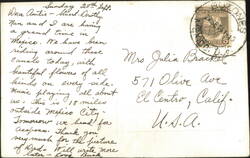 Sunday 20th Sept.
Dear Auntie -
Mom and I are having
a grand time in
Mexico. We have been
riding around these
canals today, with
beautiful flowers of all
kinds on every side and
music playing all about
us - this is 18 miles
outside Mexico City.
Tomorrow we head for
Acapulco. Thank you
very much for the picture
of Will write more
later - love
Mrs Julia Bracket
571 Olive Ave
El Centro, Calif.
U.S.A.